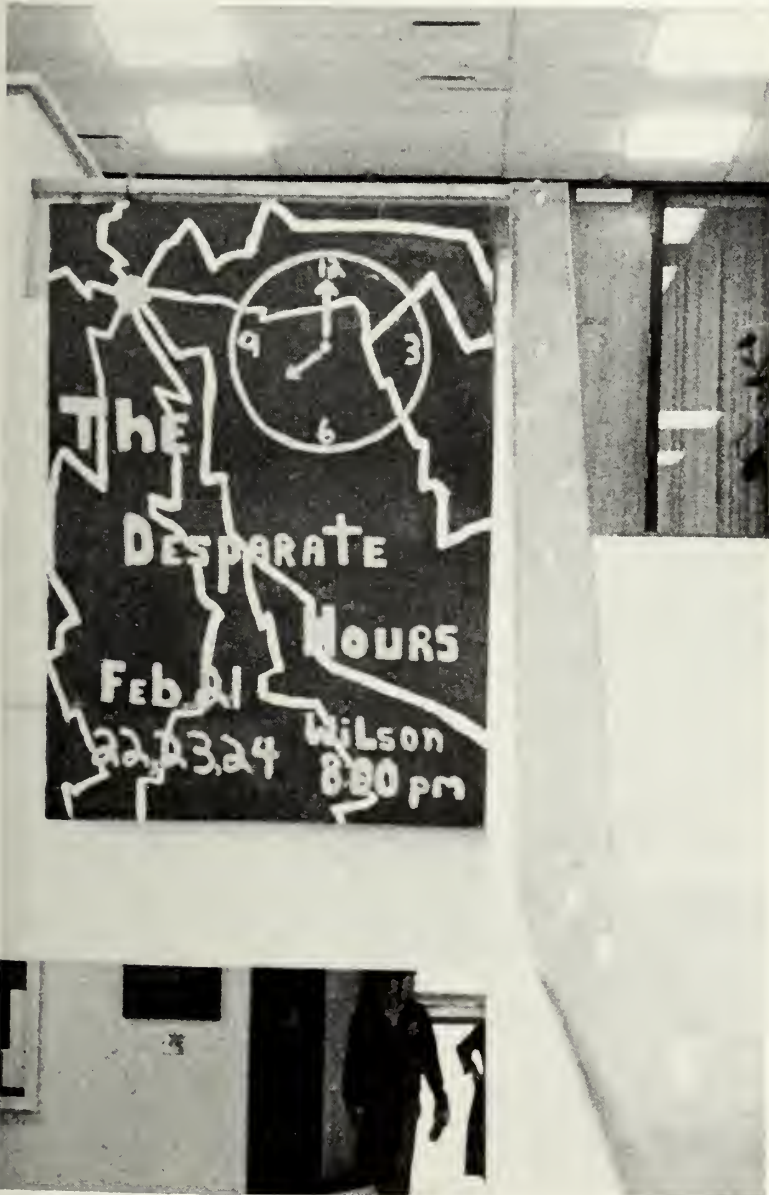 12
9 3
6
The
DESPARATE
HOURS
FEb. 21
22,23,24
WiLson
8:00 pm